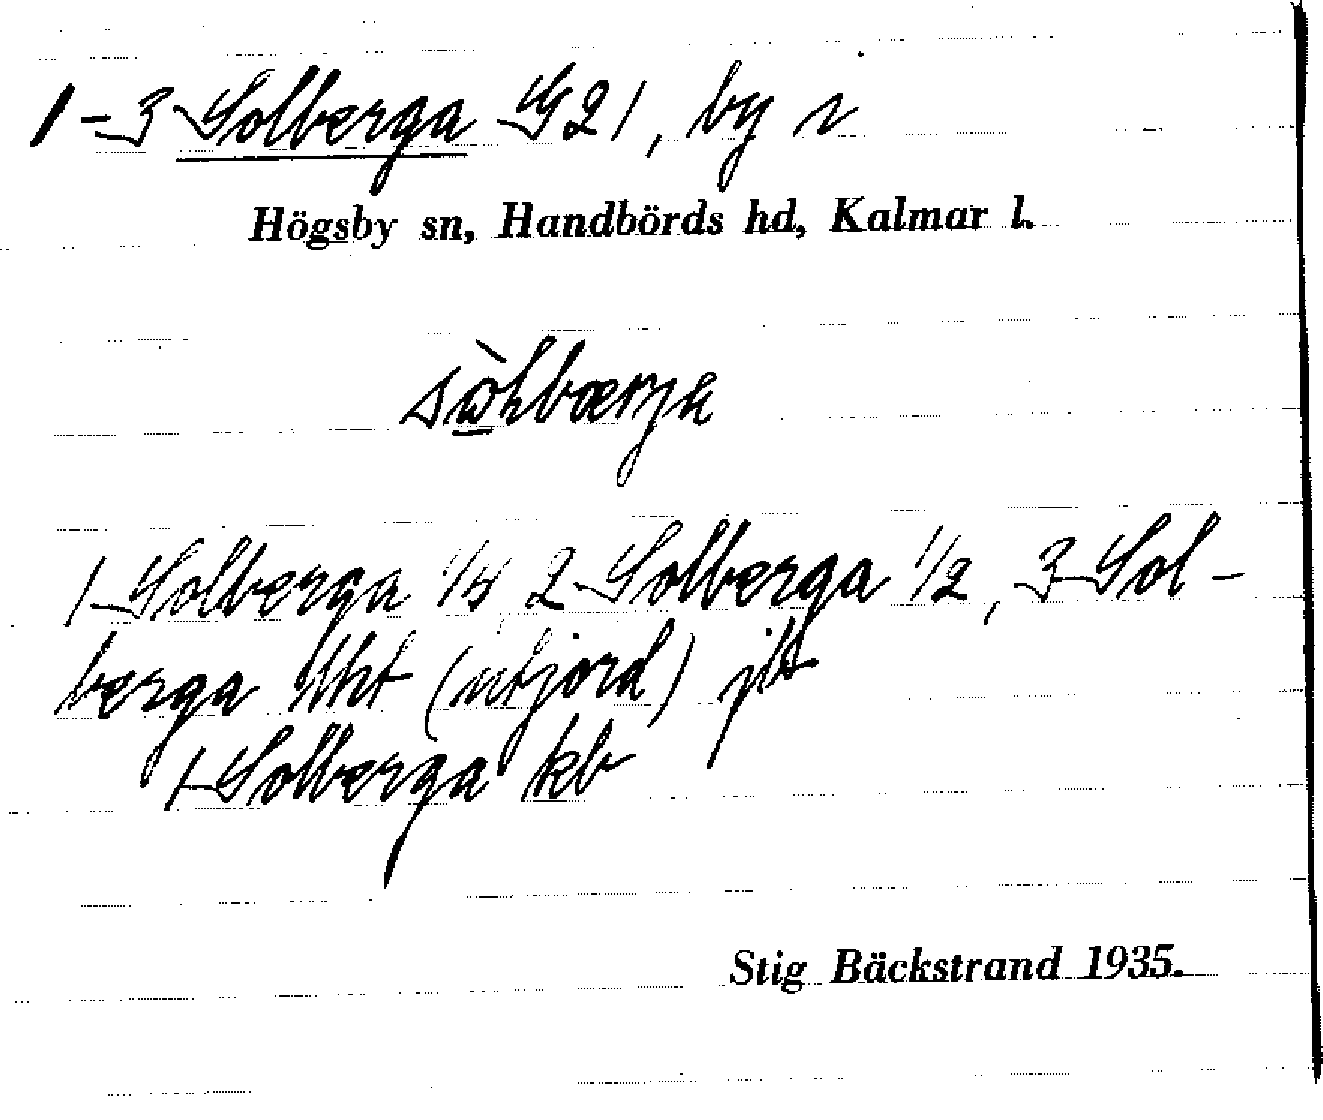 1-3 Solberga G21, by i
Högsby sn, Handbörds hd, Kalmar l.
1 Solberga 1/4, 2 Solberga 1/2, 3 Sol-
berga Uht (utjord) jb
1 Solberga kb
Stig Bäckstrand 1935.